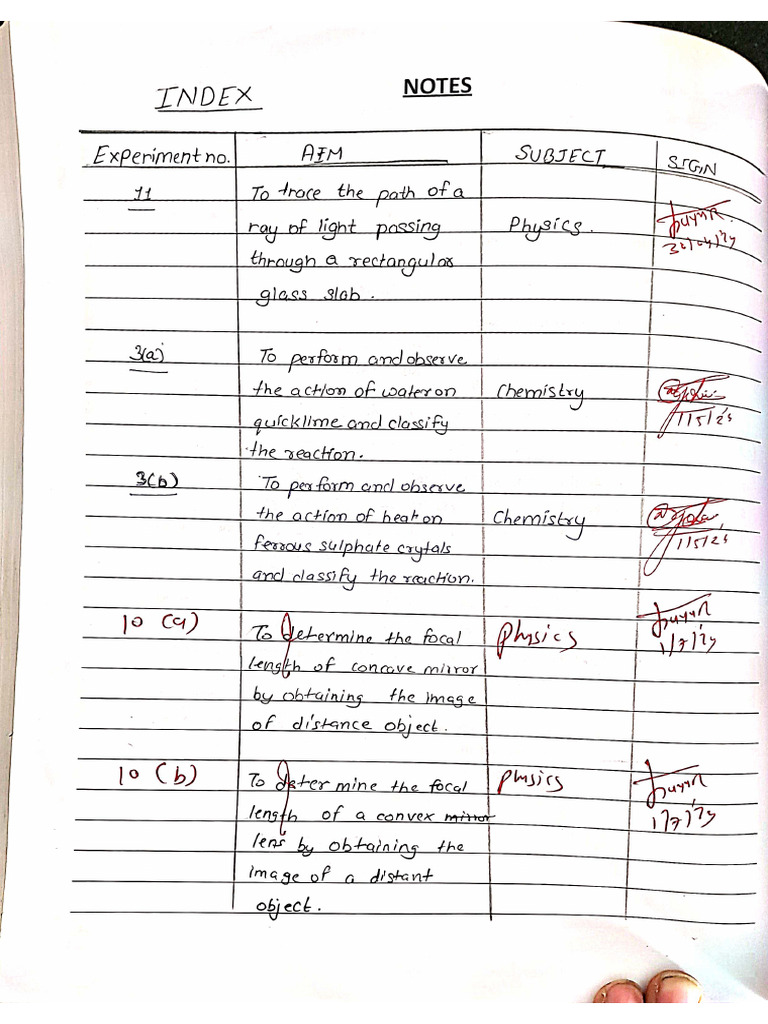 NOTES
INDEX
Experiment no. AIM SUBJECT SIGN
11 To trace the path of a
ray of light passing Physics.
through a rectangular
glass slab.
3(a) To perform and observe
the action of water on Chemistry
quicklime and classify 1/5/25
the reaction.
3(b) To perform and observe
the action of heat on Chemistry
ferrous sulphate crytals 1/5/25
and classify the reaction.
10 (a) To determine the focal Physics
length of concave mirror
by obtaining the image
of distance object.
10 (b) To determine the focal Physics
length of a convex mirror
lens by obtaining the
image of a distant
object.